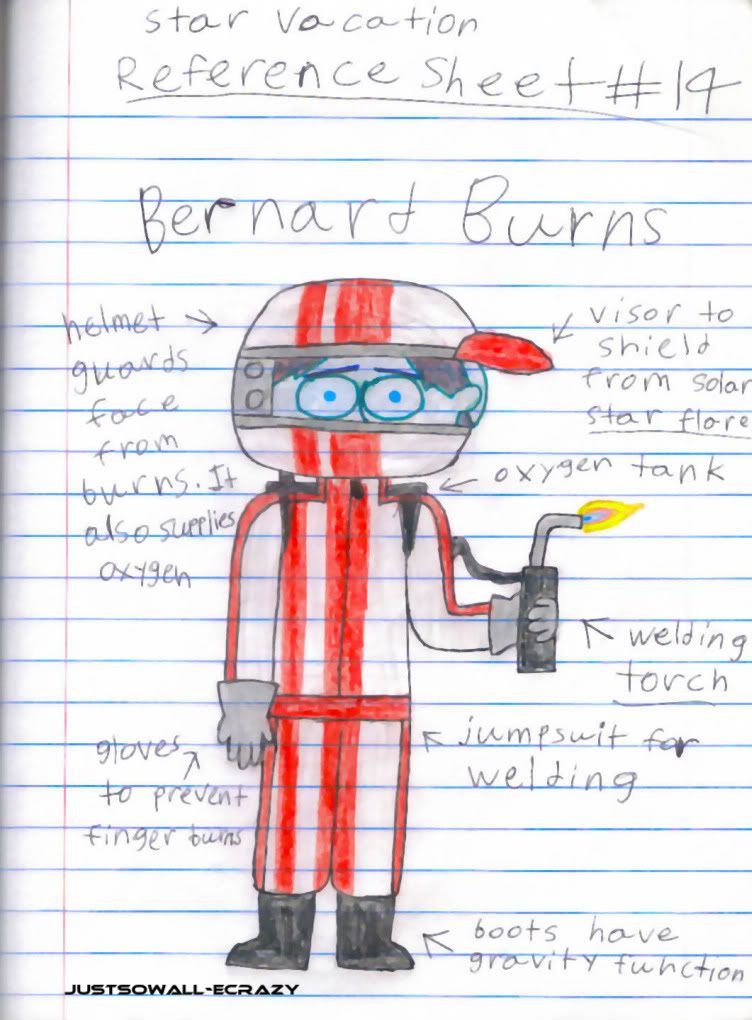 star vacation
Reference Sheet #14
Bernard Burns
helmet
guards
face
from
burns. It
also supplies
oxygen
visor to
shield
from solar
star flare
oxygen tank
welding
torch
gloves
to prevent
finger burns
jumpsuit for
welding
boots have
gravity function
JUSTSOWALL-ECRAZY